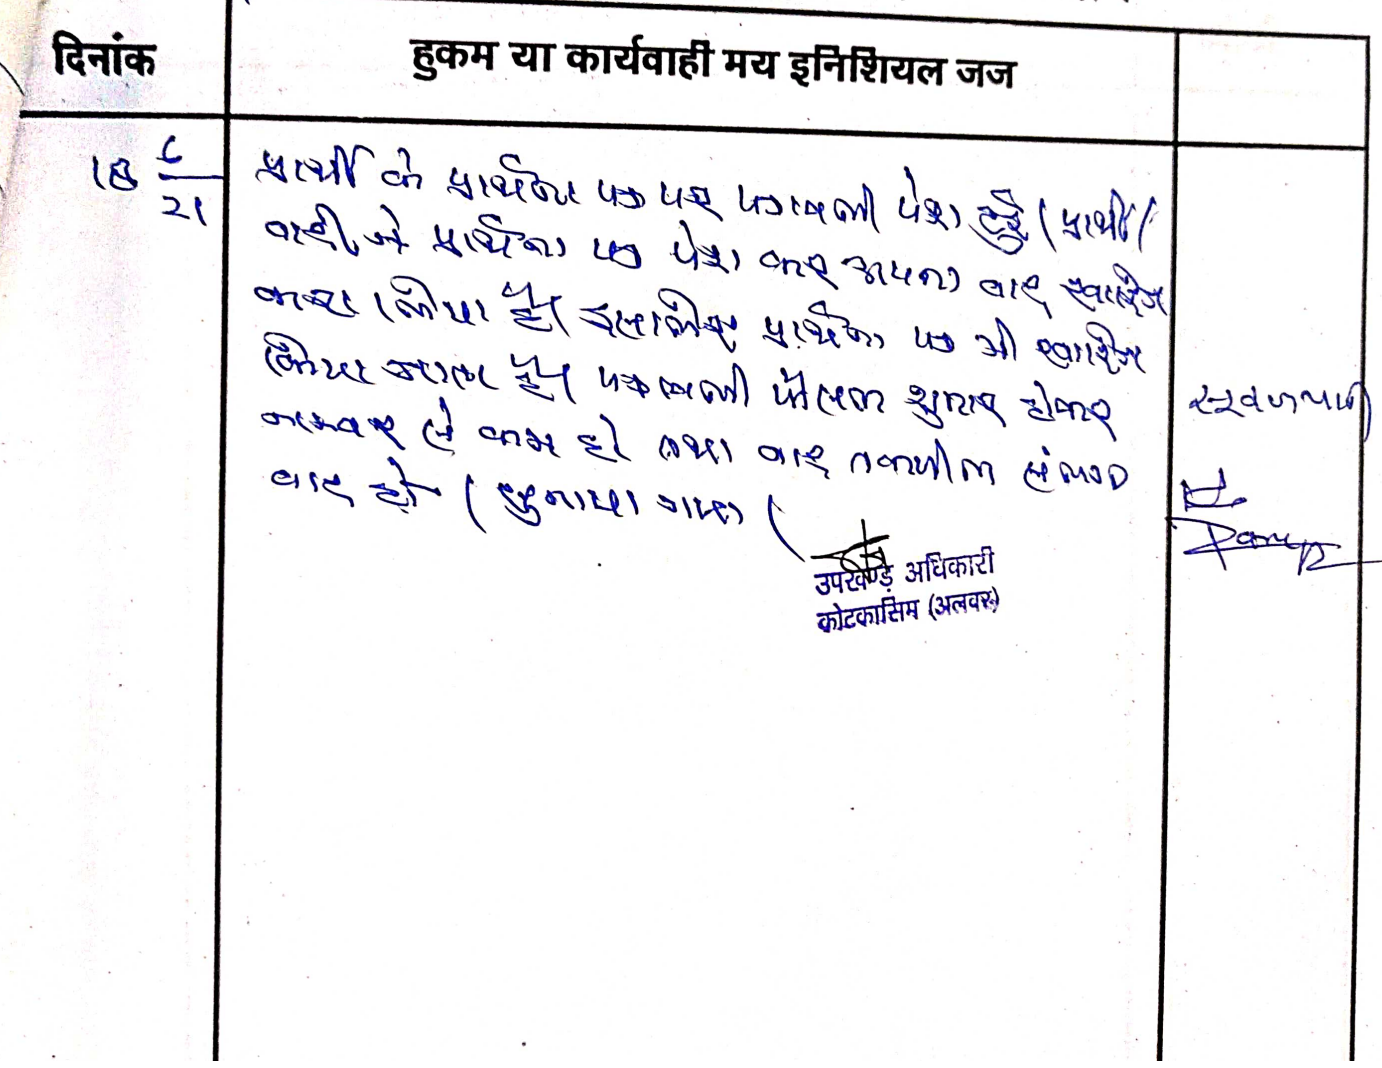 दिनांक हुकम या कार्यवाही मय इनिशियल जज
18 6/21 प्रार्थी के प्रार्थना पत्र पर पत्रावली पेश हुई। प्रार्थी/
वादी ने प्रार्थना पत्र पेश कर अपना वाद खारिज
करा लिया है। इसलिए प्रार्थना पत्र भी खारिज
किया जाता है। पत्रावली फैसल शुमार होकर
नम्बर से कम हो तथा बाद तकमील संलग्न
वाद हो। सुनाया गया।
उपखण्ड अधिकारी
कोटकासिम (अलवर)